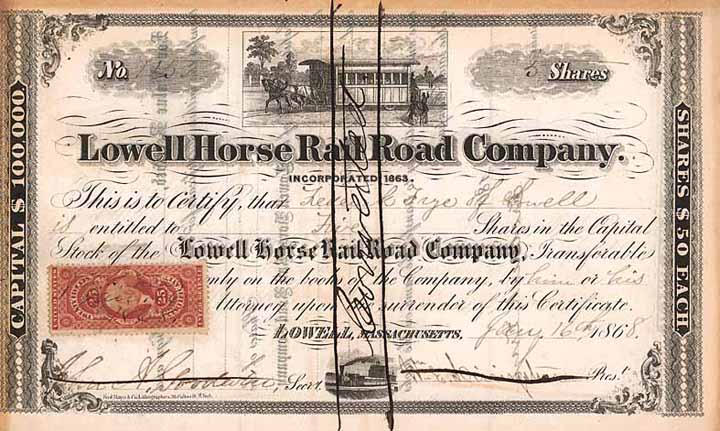 No.
5 Shares
Lowell Horse Rail Road Company.
INCORPORATED 1863.
This is to Certify, that Frye of Lowell
is entitled to Five Shares in the Capital
Stock of the Lowell Horse Rail Road Company, Transferable
only on the books of the Company, by him or his
Attorney upon surrender of this Certificate.
LOWELL, MASSACHUSETTS, Jany 16th 1868.
Secr.
Prest.
CAPITAL $ 100,000
SHARES $ 50 EACH
Cancelled